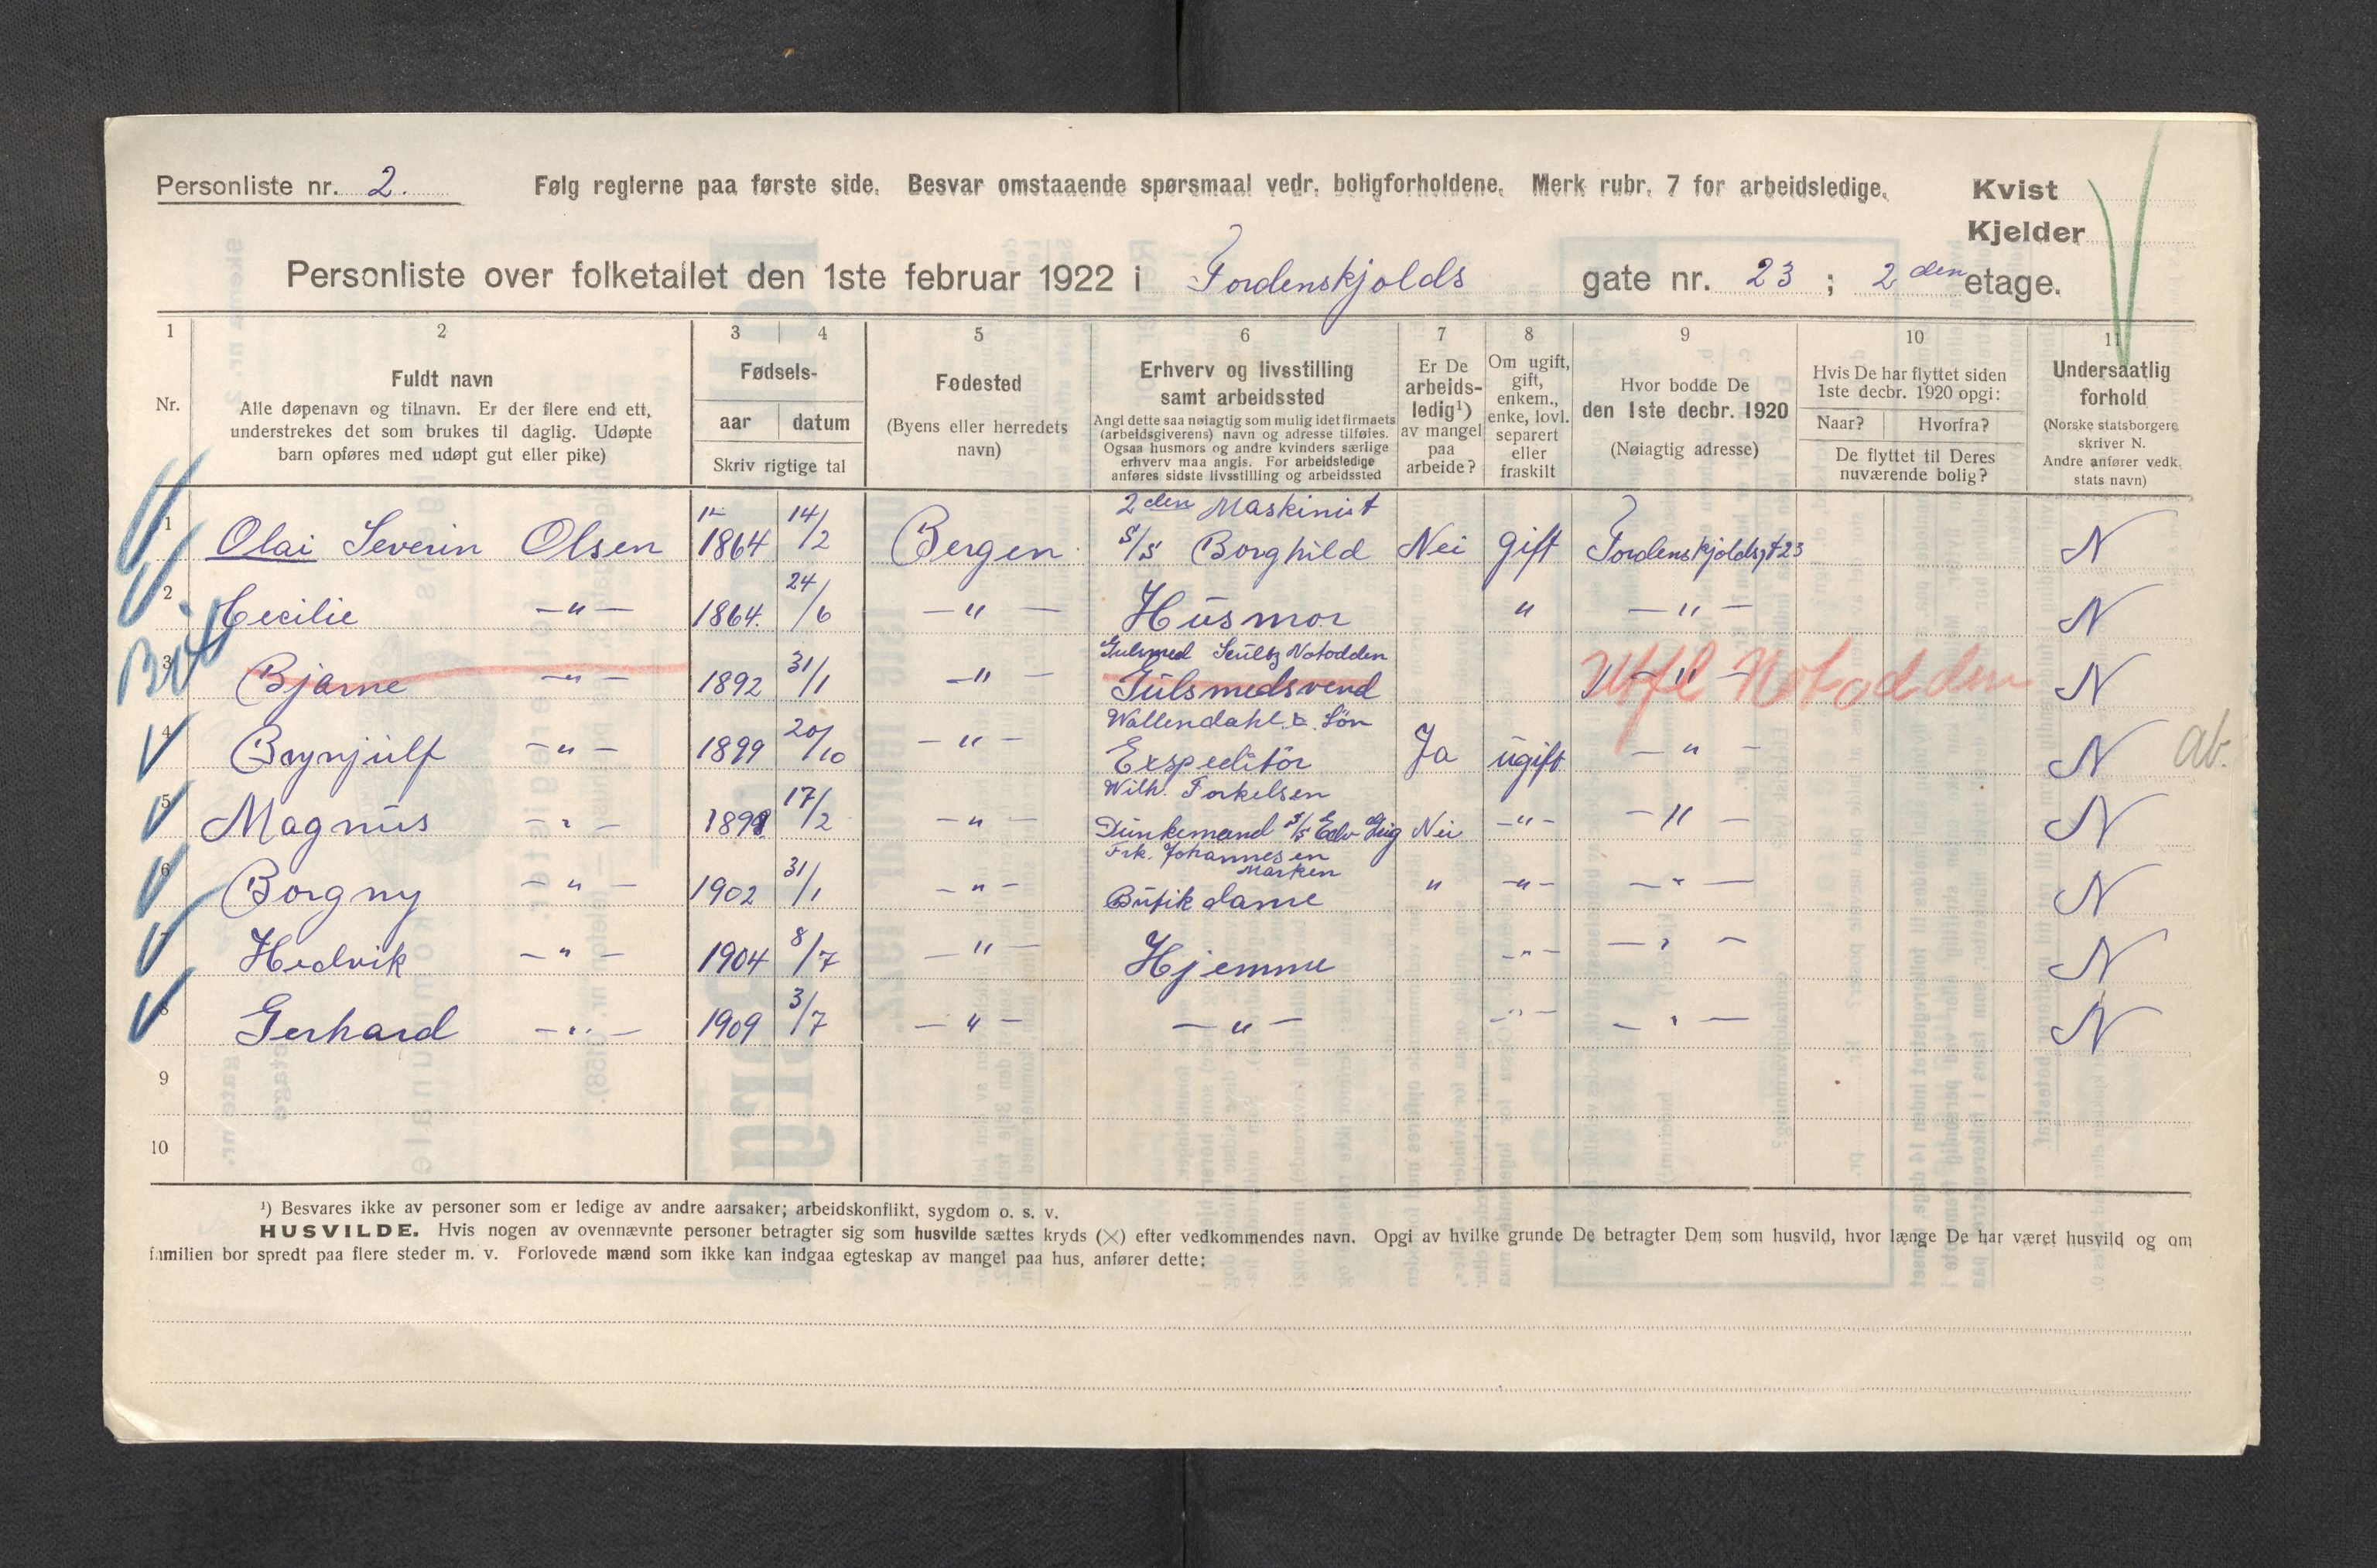 Personliste nr. 2.
Følg reglerne paa første side. Besvar omstaaende spørsmaal vedr. boligforholdene. Merk rubr. 7 for arbeidsledige.
Kvist
Kjelder
Personliste over folketallet den 1ste februar 1922 i Tordenskjolds gate nr. 23 ; 2 den etage.
1 2 3 4 5 6 7 8 9 10 11
Nr.
Fuldt navn
Alle døpenavn og tilnavn. Er der flere end ett,
understrekes det som brukes til daglig. Udøpte
barn opføres med udøpt gut eller pike)
Fødsels-
aar datum
Skriv rigtige tal
Fødested
(Byens eller herredets
navn)
Erhverv og livsstilling
samt arbeidssted
Angi dette saa nøiagtig som mulig idet firmaets
(arbeidsgiverens) navn og adresse tilføies.
Ogsaa husmors og andre kvinders særlige
erhverv maa angis. For arbeidsledige
anføres sidste livsstilling og arbeidssted
Er De
arbeids-
ledig¹)
av mangel
paa
arbeide?
Om ugift,
gift,
enkem.,
enke, lovl.
separert
eller
fraskilt
Hvor bodde De
den 1ste decbr. 1920
(Nøiagtig adresse)
Hvis De har flyttet siden
1ste decbr. 1920 opgi:
Naar? Hvorfra?
De flyttet til Deres
nuværende bolig?
Undersaatlig
forhold
(Norske statsborgere
skriver N.
Andre anfører vedk.
stats navn)
2den Maskinist
1 Olai Severin Olsen 1864 14/2 Bergen S/S Borghild Nei gift Tordenskjoldsgt 23 N
2 Cecilie —"— 1864. 24/6 —"— Husmor " —"— N
Gulsmed Scultz Notodden
3 Bjarne —"— 1892 31/1 —"— Gulsmedsvend —"— Utfl Notodden N
Wallendahl & Søn
4 Brynjulf —"— 1899 20/10 —"— Expeditør Ja ugift —"— N ab.
Wilh. Torkelsen
5 Magnus —"— 17/2 —"— Dunkemand S/S Edv Grig Nei —"— —"— N
Frk. Johannesen
Marken
6 Borgny —"— 1902 31/1 —"— Butikdame " —"— —"— N
7 Hedvik —"— 1904 8/7 —"— Hjemme —"— —"— N
8 Gerhard —"— 1909 3/7 —"— —"— —"— —"— N
9
10
¹) Besvares ikke av personer som er ledige av andre aarsaker; arbeidskonflikt, sygdom o. s. v.
HUSVILDE. Hvis nogen av ovennævnte personer betragter sig som husvilde sættes kryds (×) efter vedkommendes navn. Opgi av hvilke grunde De betragter Dem som husvild, hvor længe De har været husvild og om
familien bor spredt paa flere steder m. v. Forlovede mænd som ikke kan indgaa egteskap av mangel paa hus, anfører dette: